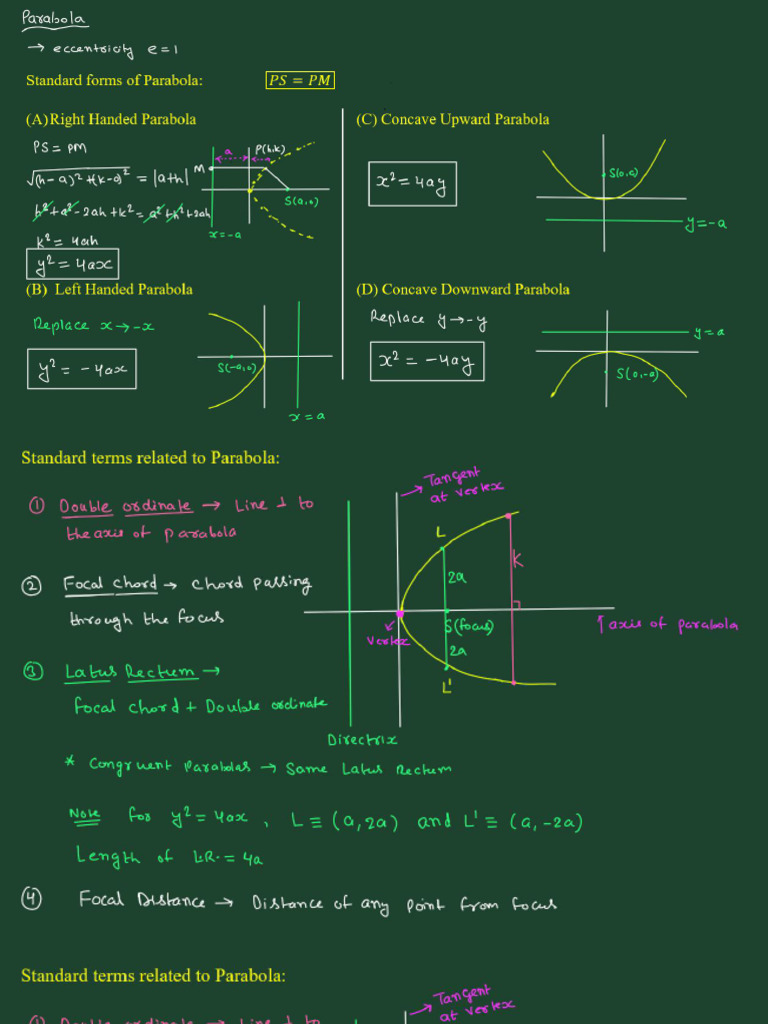 Parabola
→ eccentricity e = 1
Standard forms of Parabola: PS = PM
(A) Right Handed Parabola
PS = PM
√(h-a)²+(k-0)² = |a+h|
h²+a²-2ah+k² = a²+h²+2ah
k² = 4ah
y² = 4ax
a
P(h,k)
M
S(a,0)
x=-a
(B) Left Handed Parabola
Replace x→-x
y² = -4ax
S(-a,0)
x = a
(C) Concave Upward Parabola
x² = 4ay
S(0,a)
y=-a
(D) Concave Downward Parabola
Replace y→-y
x² = -4ay
y=a
S(0,-a)
Standard terms related to Parabola:
① Double ordinate → Line ⊥ to
the axis of parabola
② Focal chord → chord passing
through the focus
③ Latus Rectum →
focal chord + Double ordinate
→ Tangent
at vertex
L
K
2a
S(focus)
↑ axis of parabola
vertex
2a
L'
Directrix
* Congruent parabolas → same Latus rectum
Note for y² = 4ax, L ≡ (a, 2a) and L' ≡ (a, -2a)
Length of L.R. = 4a
④ Focal Distance → Distance of any point from focus
Standard terms related to Parabola:
→ Tangent
at vertex
① Double ordinate → Line ⊥ to